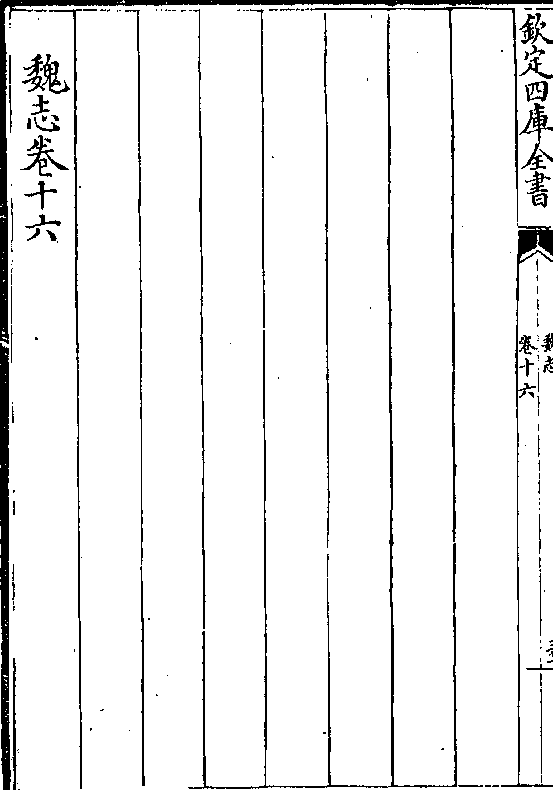 欽定四庫全書
魏志
卷十六
魏志卷十六